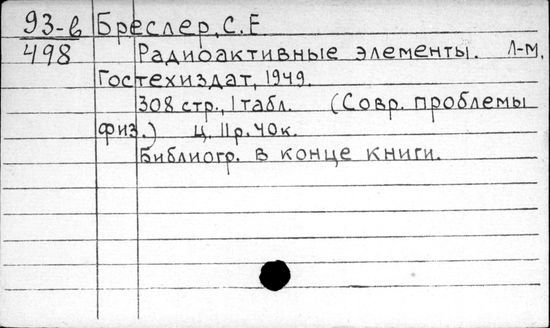 93-в Бреслер, С.Е
498 Радиоактивные элементы. Л-м,
Гостехиздат, 1949.
308 стр., 1 табл. (Совр. проблемы
физ.) ц. 11р. 40к.
Библиогр. в конце книги.